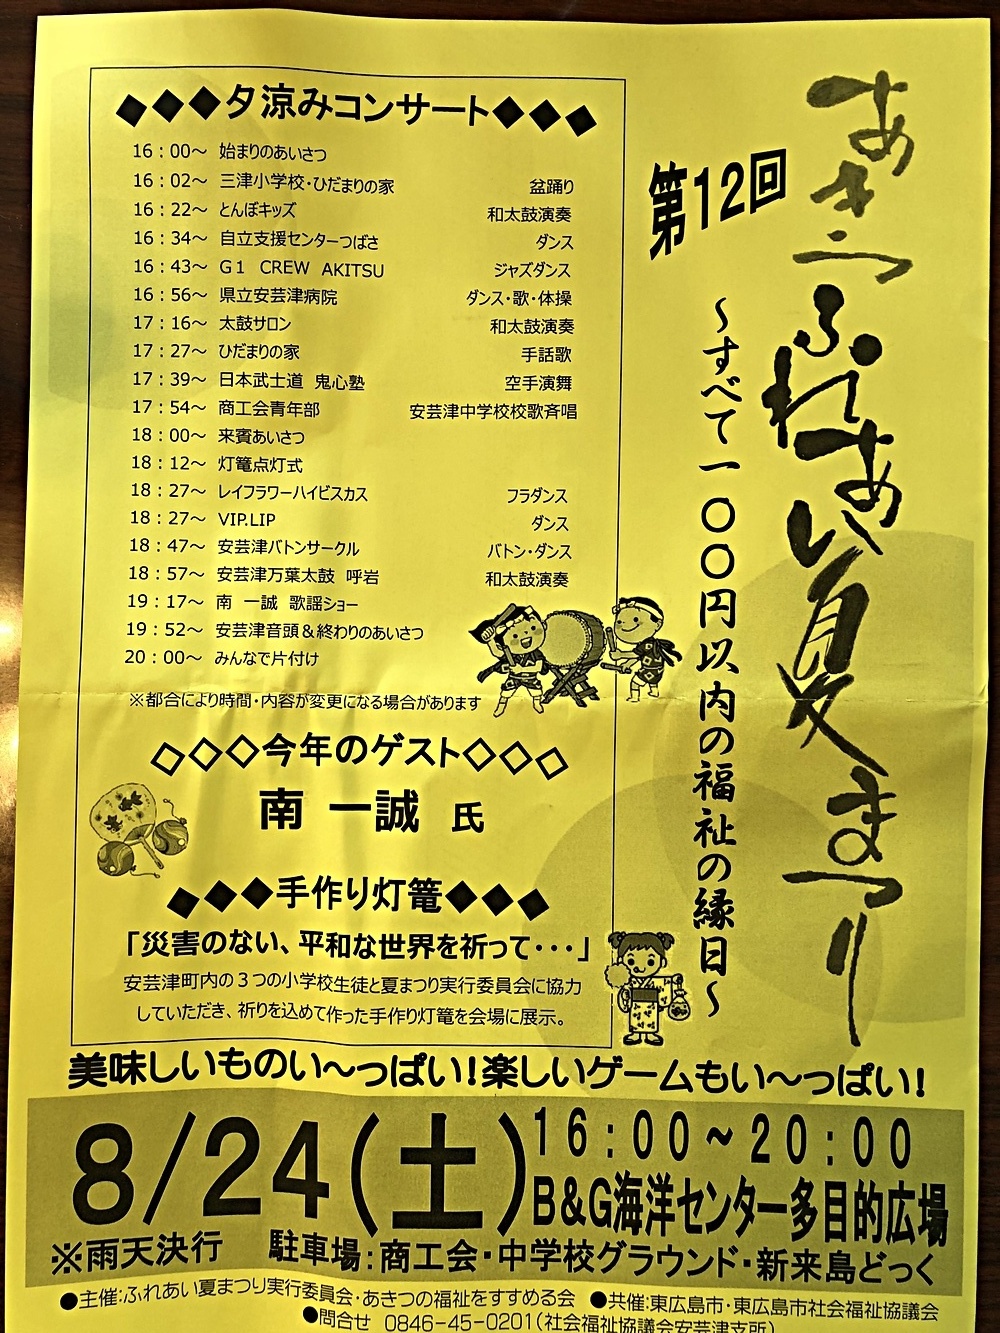 第12回
あきつふれあい夏まつり
～すべて一〇〇円以内の福祉の縁日～
◆◆◆夕涼みコンサート◆◆◆
16：00～ 始まりのあいさつ
16：02～ 三津小学校・ひだまりの家 盆踊り
16：22～ とんぼキッズ 和太鼓演奏
16：34～ 自立支援センターつばさ ダンス
16：43～ G1 CREW AKITSU ジャズダンス
16：56～ 県立安芸津病院 ダンス・歌・体操
17：16～ 太鼓サロン 和太鼓演奏
17：27～ ひだまりの家 手話歌
17：39～ 日本武士道 鬼心塾 空手演舞
17：54～ 商工会青年部 安芸津中学校校歌斉唱
18：00～ 来賓あいさつ
18：12～ 灯篭点灯式
18：27～ レイフラワーハイビスカス フラダンス
18：27～ VIP.LIP ダンス
18：47～ 安芸津バトンサークル バトン・ダンス
18：57～ 安芸津万葉太鼓 呼岩 和太鼓演奏
19：17～ 南 一誠 歌謡ショー
19：52～ 安芸津音頭＆終わりのあいさつ
20：00～ みんなで片付け
※都合により時間・内容が変更になる場合があります
◇◇◇今年のゲスト◇◇◇
南 一誠 氏
◆◆◆手作り灯篭◆◆◆
「災害のない、平和な世界を祈って・・・」
安芸津町内の３つの小学校生徒と夏まつり実行委員会に協力
していただき、祈りを込めて作った手作り灯篭を会場に展示。
美味しいものい～っぱい！楽しいゲームもい～っぱい！
8/24(土)
16：00～20：00
B&G海洋センター多目的広場
※雨天決行 駐車場：商工会・中学校グラウンド・新来島どっく
●主催:ふれあい夏まつり実行委員会・あきつの福祉をすすめる会 ●共催:東広島市・東広島市社会福祉協議会
●問合せ 0846-45-0201(社会福祉協議会安芸津支所)